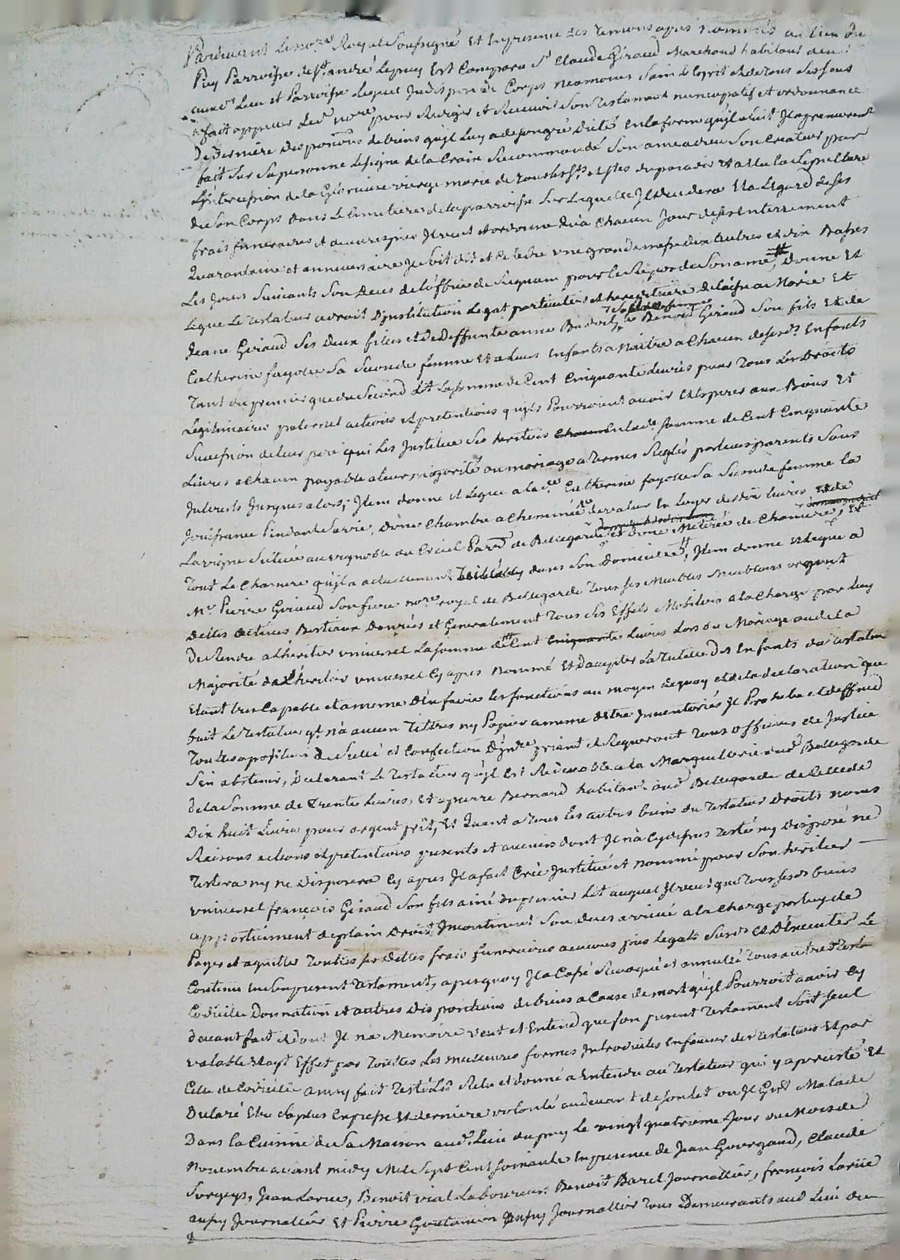 Pardevant le no.re Royal Soussigné Et En presence des Temoins apres nommés au lieu du
Puy Parroisse de S.t andré Lepuy Est Comparu S.r Claude Giraud Marchand habitant dud.
Lieu et Parroisse Lequel Indisposé de Corps neamoins Sain desprit et de tous ses sens
a fait appeller Led. no.re pour Rediger et Recevoir Son Testament nuncupatif et ordonnance
De Derniere Disposions de biens qu'il Luy a de son gré Dicté En la forme qu'il suit Il a premierement
fait Sur Sa personne Le signe de la Croix Recommandé Son ame a dieu Son Createur par
L'intercession de la Glorieuse vierge marie de tous les S.ts et S.tes du paradis Et Elu la Sepulture
de Son Corps Dans Le Cimetiere de la parroisse Sur Laquelle Il decedera Et a L'Egard de ses
frais funeraires et oeuvres pies Il veut et ordonne qu'a Chacun Jour de ses Enterrement
Quarantaine et anniversaire Il soit dit et Celebré une grande messe deux autres et dix Basses
Les Jours Suivants Son Deces de l'office de Requiem pour le Repos de Son ame, # Donne Et
Legue Le Testateur a droit D'institution Legat particulier et hereditaire a Marie Et
Jeane Giraud Ses Deux filles et de Deffunte anne Benoit Giraud Son fils Et de
Catherine fayolle Sa Seconde femme Et a Leurs Enfants a Naitre a Chacun de ses d. Enfants
Tant du premier que du Second Lit La somme de Cent Cinquante Livres pour Tous Les Droits
Legitimaires paternel actions et pretentions qu'ils Pourroient avoir et Esperer aux Biens Et
Succession de leur pere qui Les Institue Ses heritiers en lad. somme de Cent Cinquante
Livres a Chacun payable a leur majorité ou mariage a Termes Reglés par leurs parents Sans
Interests Jusques alors; Item donne et Legue a lad. Catherine fayolle Sa Seconde femme La
Jouissance Pendant Sa vie D'une Chambre a Cheminée de valeur En Loyer de dix Livres
La vigne Située au vignoble du Parr.e de Bellegarde et Deux Meterées de Chaneviere, Et
Tout Le Chanvre qu'il a actuellement dans Son Domicile #, Item donne et Legue a
M.e Pierre Giraud Son frere no.re royal de Bellegarde Tous ses Meubles Meublants
Dettes actives Bestiaux Denrées et Generalement Tous Ses Effets Mobiliers a la Charge par Luy
De Rendre a l'heritier universel La somme de Cent Cinquante Livres Lors du Mariage ou de la
Majorité de L'heritier universel Cy apres Nommé Et D'accepter La Tutelle des Enfants du Testateur
Etant tres Capable et a meme D'en faire les fonctions au moyen de quoy et de la declaration que
fait Le Testateur q.l n'a aucun Titres ny Papier a meme D'etre Inventoriés Il Prohibe et deffend
Toutes apositions de Scellé et Confection D'Inv.re priant et Requerant Tous officiers de Justice
S'en abstenir, Declarant Le Testateur qu'il Est Redevable a La Marguilerie aud. Bellegarde
de la Somme de Trente Livres, Et a pierre Bernard habitant aud. Bellegarde de Celle de
Dix huit Livres pour argent prêt, Et Quant a Tous les autres biens du Testateur Droits noms
Raisons actions et pretentions presents et avenir dont Il n'a Cy dessus Testé ny Disposé ne
Testera ny ne Disposera Cy apres Il a fait Créé Institué et nommé pour Son heritier
universel francois Giraud Son fils ainé du premier Lit auquel Il veut que Tous ses d. biens
appartiennent de plain Droit Incontinent Son deces arrivé a la Charge par luy de
Payer et aquitter Touttes ses Dettes frais funeraires oeuvres pies Legats Susd. Et D'Executer Le
Contenu en Son present Testament, a quoy Il a Cassé Revoqué et annullé Tous autres Testa.
Codicille Donnation et autres Dispositions de biens a Cause de mort qu'il Pourroit avoir Cy
devant fait et dont Il n'a Memoire veut et Entend que Son present Testament Soit Seul
valable Et ayt Effet par Touttes Les meilleures formes Introduites En faveur des Testateurs Et par
Celle de Codicille ainsy fait Testé Lu Relu et donné a Entendre au Testateur qui y a persisté Et
Declaré Etre Sa plus Expresse Et derniere volonté au devant de Son Lit ou Il Gist Malade
Dans la Cuisine de Sa Maison aud. Lieu du puy Le vingt quatreme Jour du Mois de
Novembre avant midy Mil Sept Cent Soixante En presence de Jean Gourgaud, Claude
Jean Larue, Benoit vial Laboureurs Benoit Barel Journallier, francois Larue
aussy Journallier Et Pierre aussy Journallier Tous Demeurants aud. Lieu du